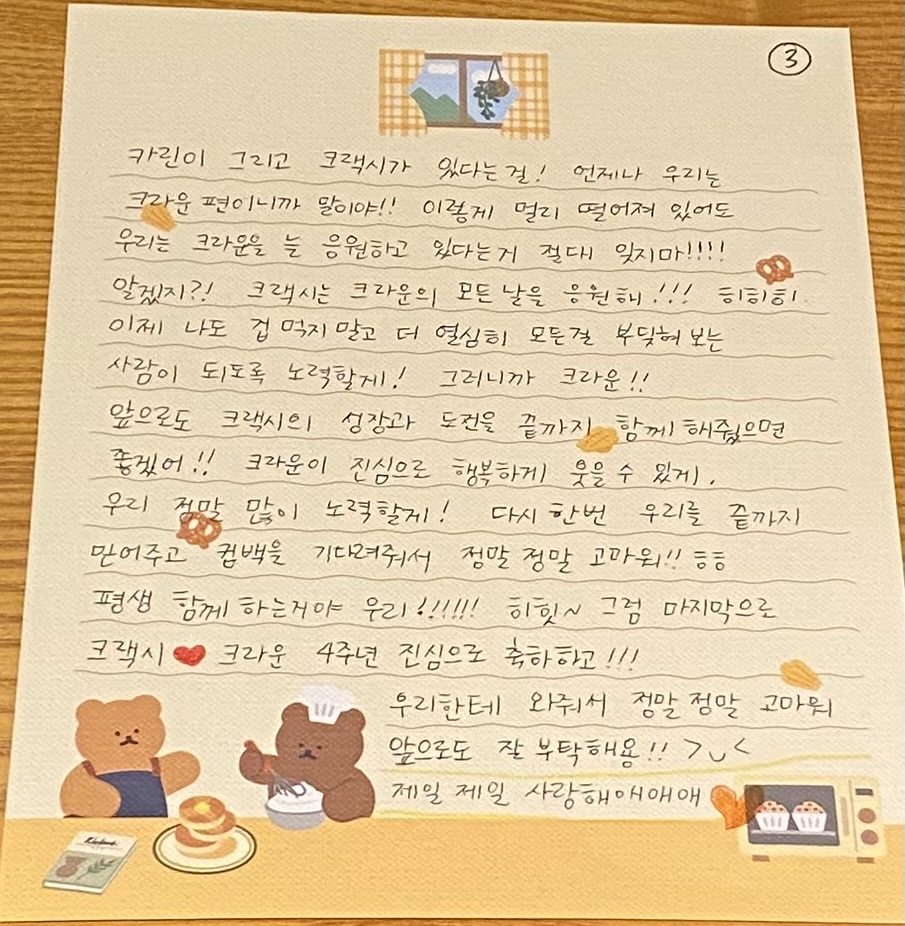 ③
카린이 그리고 크랙시가 있다는걸! 언제나 우리는
크라운 편이니까 말이야!! 이렇게 멀리 떨어져 있어도
우리는 크라운을 늘 응원하고 있다는거 절대 잊지마!!!!
알겠지?! 크랙시는 크라운의 모든날을 응원해!!! 히히히
이제 나도 겁먹지말고 더 열심히 모든걸 부딪혀 보는
사람이 되도록 노력할게! 그러니까 크라운!!
앞으로도 크랙시의 성장과 도전을 끝까지 함께 해주웠으면
좋겠어!! 크라운이 진심으로 행복하게 웃을 수 있게.
우리 정말 많이 노력할게! 다시 한번 우리를 끝까지
믿어주고 컴백을 기다려줘서 정말 정말 고마워!! ㅎㅎ
평생 함께 하는거야 우리!!!!!! 히힛~ 그럼 마지막으로
크랙시❤크라운 4주년 진심으로 축하하고!!!
우리한테 와줘서 정말 정말 고마워
앞으로도 잘 부탁해용!! >◡<
제일 제일 사랑해애애애